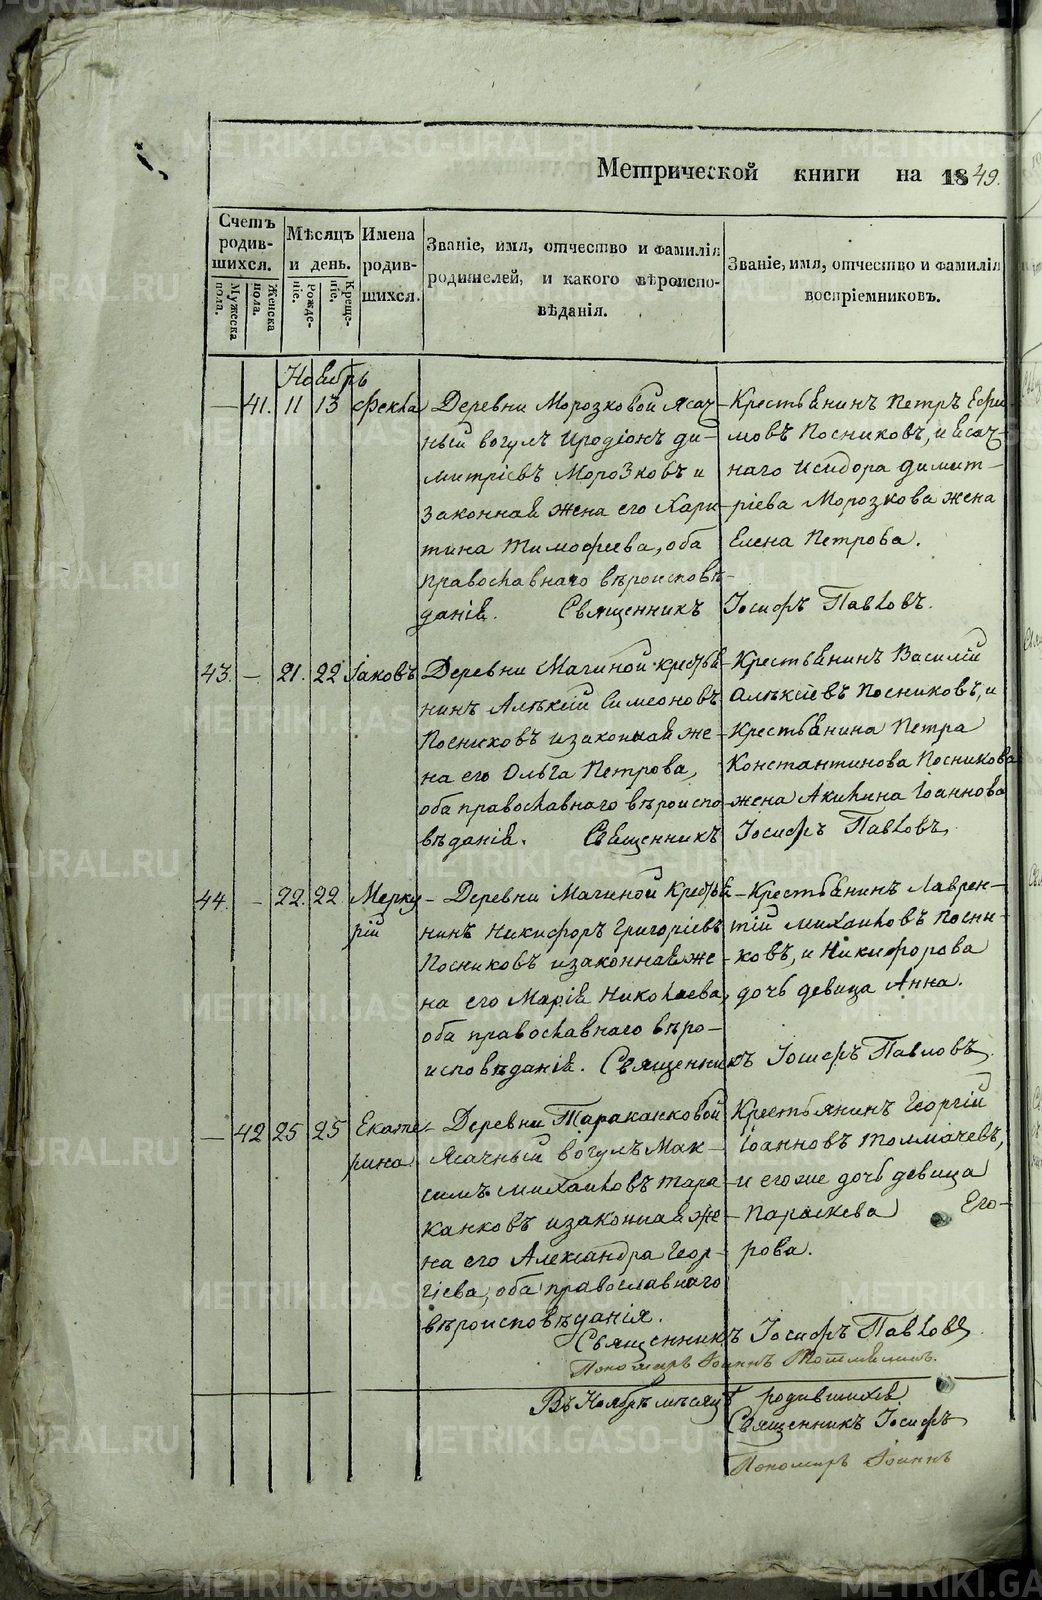 Метрической книги на 1849.
Счетъ родив-шихся.
Мужеска пола.
Женска пола.
Мѣсяцъ и день.
Рожде-ніе.
Креще-ніе.
Имена родив-шихся.
Званіе, имя, отчество и фамилія
родителей, и какого вѣроиспо-
вѣданія.
Званіе, имя, отчество и фамилія
воспріемниковъ.
Ноябрь
— 41. 11 13 Фекла
Деревни Морозковой Ясач-
ный вогулъ Иродіонъ Ди-
митріевъ Морозковъ и
законная жена его Хари-
тина Тимофеева, оба
православнаго вѣроисповѣ-
данія. Священникъ Іосифъ Павловъ.
Крестьянинъ Петръ Ефи-
мовъ Посниковъ, и Ясач-
наго Исидора Димит-
ріева Морозкова жена
Елена Петрова.
43. — 21. 22 Іаковъ
Деревни Мачиной крестья-
нинъ Алѣксій Симеоновъ
Посниковъ и законная же-
на его Ольга Петрова,
оба православнаго вѣроиспо-
вѣданія. Священникъ Іосифъ Павловъ.
Крестьянинъ Василій
Алѣксіевъ Посниковъ, и
Крестьянина Петра
Константинова Посникова
жена Акилина Іоаннова
44. — 22. 22 Мерку-
рій
Деревни Мачиной Крестья-
нинъ Никифоръ Григоріевъ
Посниковъ и законная же-
на его Марія Николаева,
оба православнаго вѣро-
исповѣданія. Священникъ Іосифъ Павловъ.
Крестьянинъ Лаврен-
тій Михаиловъ Посни-
ковъ, и Никифорова
дочь девица Анна.
— 42 25 25 Екате-
рина
Деревни Тараканковой
Ясачный вогулъ Мак-
симъ Михаиловъ Тара-
канковъ и законная же-
на его Александра Геор-
гіева, оба православнаго
вѣроисповѣданія.
Крестьянинъ Георгій
Іоанновъ Толмачевъ,
и егоже дочь девица
Параскева Его-
рова.
Священникъ Іосифъ Павловъ.
Пономарь Іоаннъ
Въ Ноябрѣ мѣсяцѣ родившихся
Священникъ Іосифъ
Пономарь Іоаннъ
METRIKI.GASO-URAL.RU